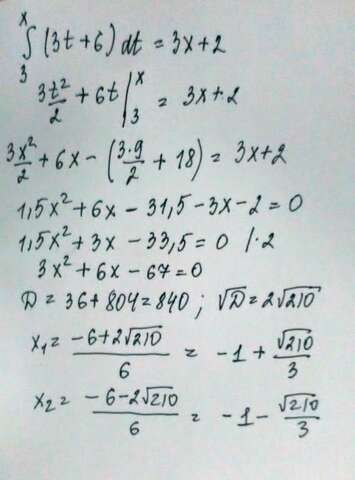 ∫₃ˣ (3t+6) dt = 3x+2
3t²/2 + 6t |₃ˣ = 3x+2
3x²/2 + 6x - (3·9/2 + 18) = 3x+2
1,5x² + 6x - 31,5 - 3x - 2 = 0
1,5x² + 3x - 33,5 = 0 /·2
3x² + 6x - 67 = 0
D = 36 + 804 = 840 ; √D = 2√210
x₁ = (-6+2√210)/6 = -1 + √210/3
x₂ = (-6-2√210)/6 = -1 - √210/3